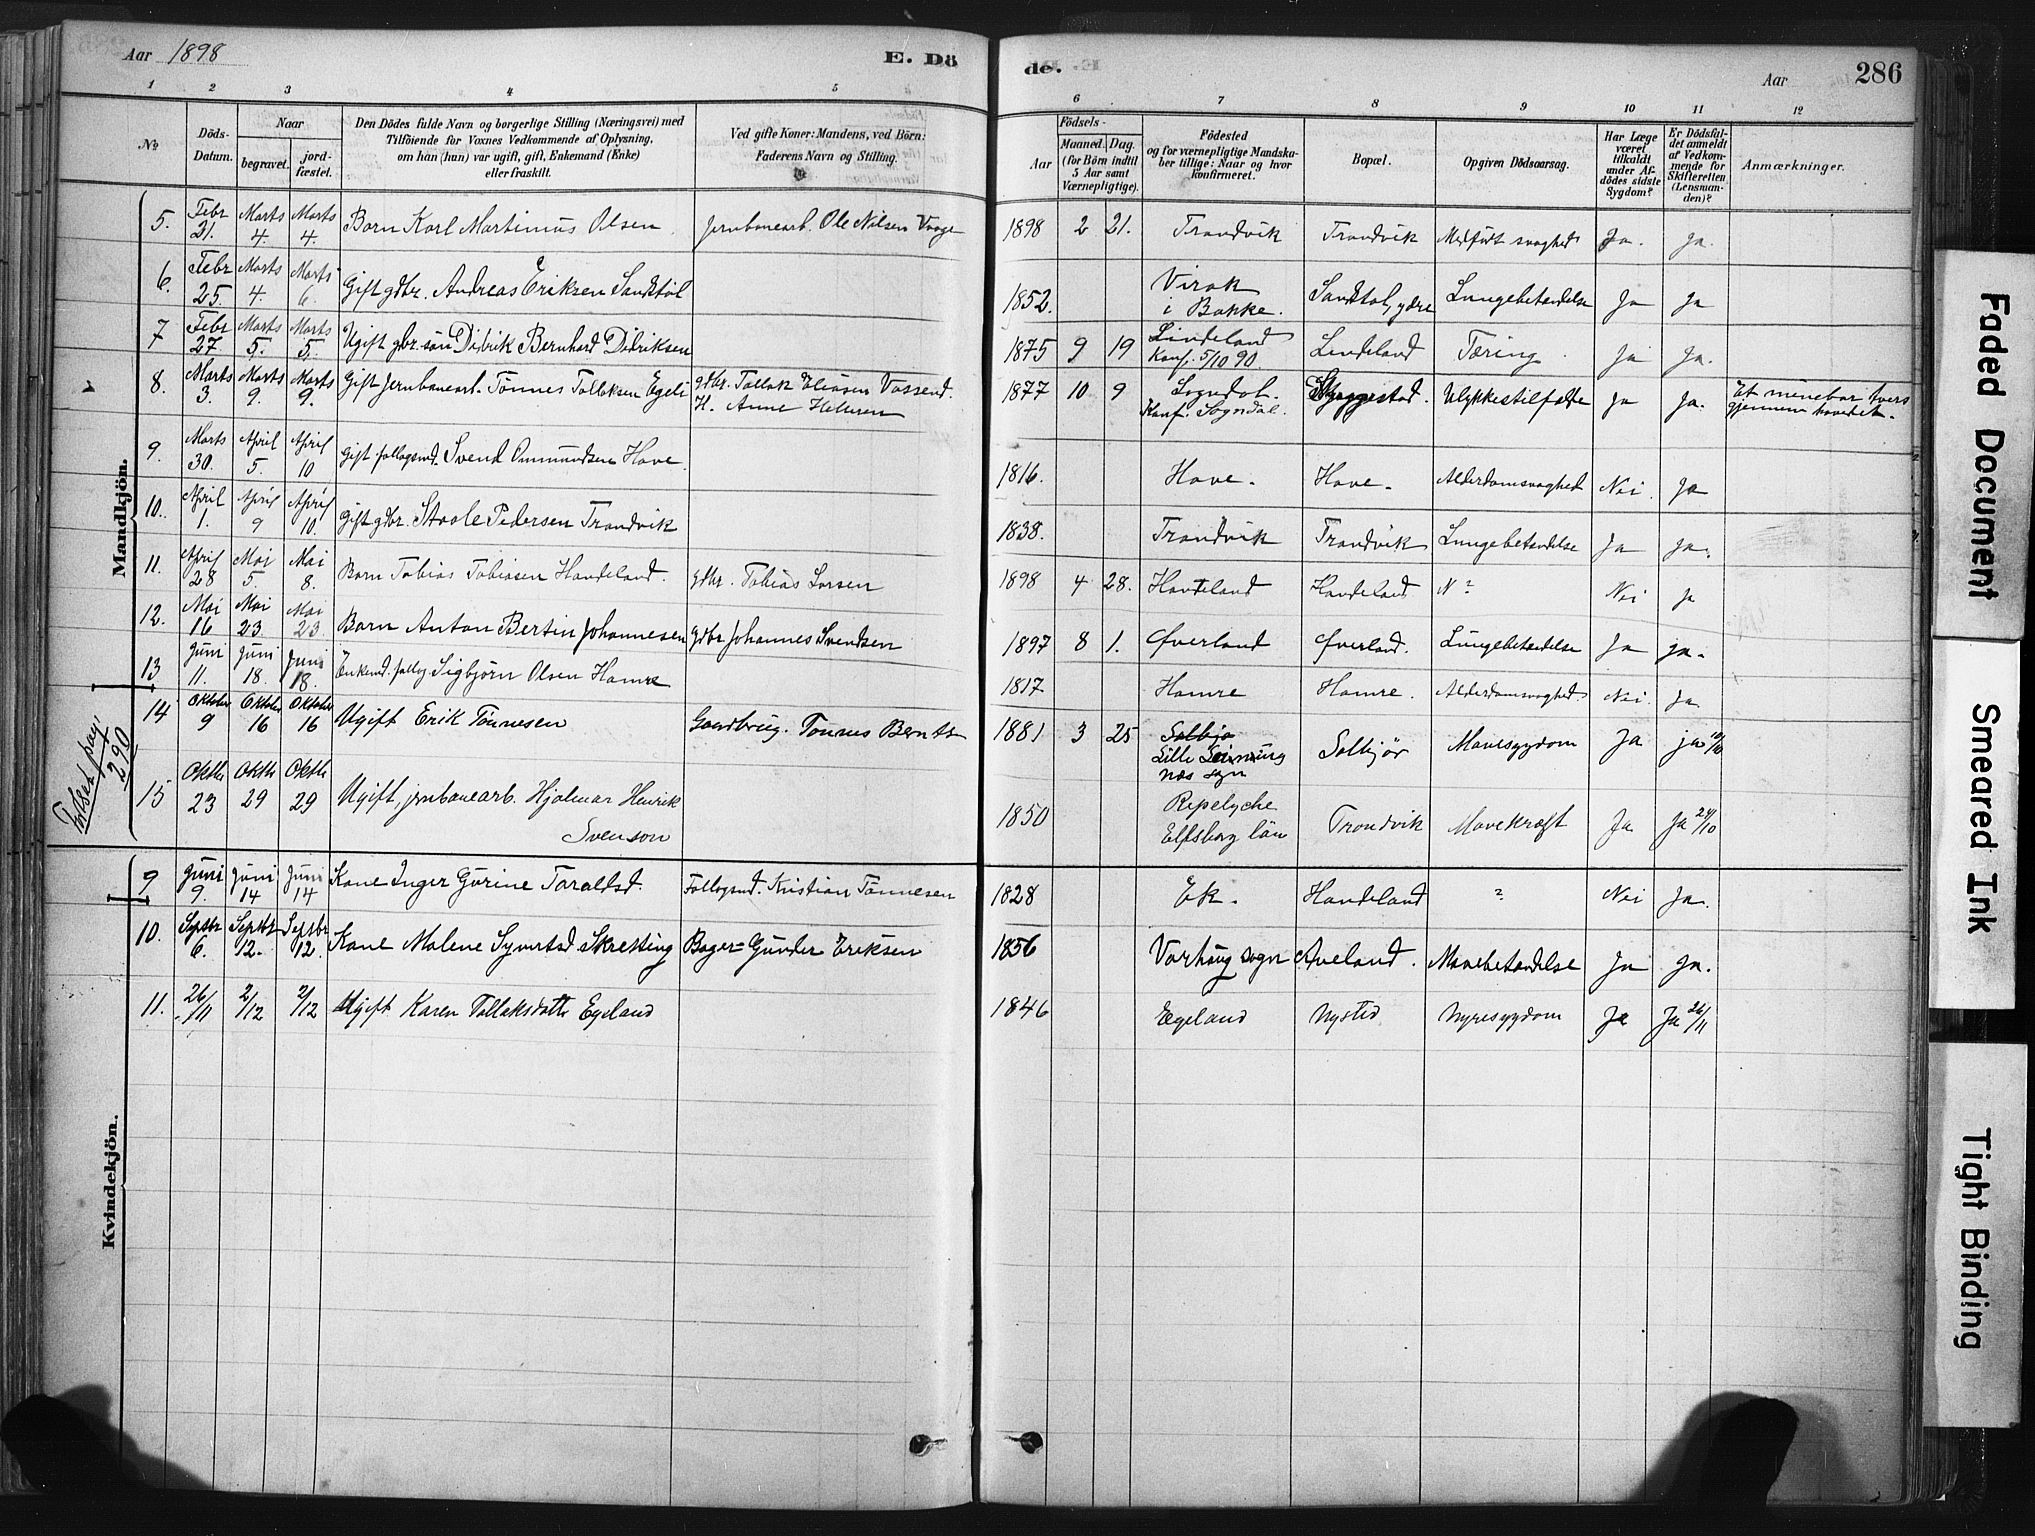 Aar 1898
E. Dö
de.
Aar
286
1 2 3 4 5 6
6 7 8 9 10 11 12
No
Döds-
Datum.
Naar
begravet.
jord-
fæstet.
Den Dödes fulde Navn og borgerlige Stilling (Næringsvei) med
Tilföiende for Voxnes Vedkommende af Oplysning,
om han (hun) var ugift, gift, Enkemand (Enke)
eller fraskilt.
Ved gifte Koner: Mandens, ved Börn:
Faderens Navn og Stilling.
Födsels-
Aar
Maaned. Dag.
(for Börn indtil
5 Aar samt
Værnepligtige).
Födested
og for værnepligtige Mandska-
ber tillige: Naar og hvor
konfirmeret.
Bopæl.
Opgiven Dödsaarsag.
Har Læge
været
tilkaldt
under Af-
dödes sidste
Sygdom?
Er Dödsfal-
det anmeldt
af Vedkom-
mende for
Skifteretten
(Lensman-
den)?
Anmærkninger.
Mandkjön.
5. Febr 21. Marts 4. Marts 4. Barn Karl Martinius Olsen. Jernbanearb. Ole Nilsen Vaage 1898 2 21. Trandvik Trandvik Medfödt svaghed Ja. Ja.
6. Febr 25. Marts 4. Marts 6. Gift gdbr. Andreas Eriksen Sandtöl 1852. Virak
i Bakke. Sandtöl, ydre Lungebetændelse Ja Ja
7 Febr 27 Marts 5. Marts 5. Ugift gbr. sön Didrik Bernhard Didriksen 1875 9 19 Lindeland
Konf. 5/10 90. Lindeland Tæring. Ja Ja.
8. Marts 3. Marts 9. Marts 9. Gift Jernbanearb. Tönnes Tollaksen Egeli gdbr. Tollak Eliasen Vassend.
H. Anne Helmen 1877 10 9 Sogndal.
Konf. Sogndal. Skyggestad. Ulykkestilfælde Ja Ja. Et minebor tvers
gjennem hovedet.
9. Marts 30. April 5. April 10 Gift follagsmd. Svend Ommundsen Hove. 1816. Hove. Hove. Alderdomsvaghed Nei. Ja
10. April 1. April 9 April 10. Gift gdbr. Staale Pedersen Trandvik 1838. Trandvik Trandvik Lungebetændelse Ja Ja.
11. April 28 Mai 5. Mai 8. Barn Tobias Tobiasen Handeland. gdbr. Tobias Larsen 1898 4 28. Handeland Handeland N? Nei Ja
12. Mai 16 Mai 23 Mai 23. Barn Anton Bertin Johannesen Gdbr Johannes Svendsen 1897 8 1. Øverland Øverland. Lungebetændelse Ja ja.
13 Juni 11. Juni 18. Juni 18. Enkemd. follag Sigbjörn Olsen Hamre 1817 Hamre Hamre. Alderdomsvaghed. Nei. Ja
14 Oktober 9 Oktober 16 Oktober 16 Ugift Erik Tönnesen Gaardbrug. Tönnes Bernts 1881 3 25 Salbjö
Lille
næs sogn Solbjör Mavesygdom Ja ja 10/10
Fortsat pag.
290
15 Oktbr 23 Oktbr 29 Oktbr 29 Ugift, jernbanearb. Hjalmar Henrik
Svenson 1850 Repelyche
Elfsborg län Trandvik Mavekræft Ja Ja 24/10
Kvindekjön.
9 Juni 9. Juni 14 Juni 14 Kone Inger Gurine Taraldsd. Follagsmd. Kristian Tönnesen 1828 Ek. Handeland ? Nei Ja.
10. Septbr 6. Septbr 12. Septbr 12. Kone Malene Syvertsd Skretting Bager= Gunder Eriksen 1856 Varhaug sogn Aveland. Mavebetændelse Ja Ja.
11. 26/11 2/12 2/12 Ugift Karen Tollaksdatter Egeland 1846 Egeland Nysted Nyresygdom Ja Ja 26/11
Faded Document
Smeared Ink
Tight Binding